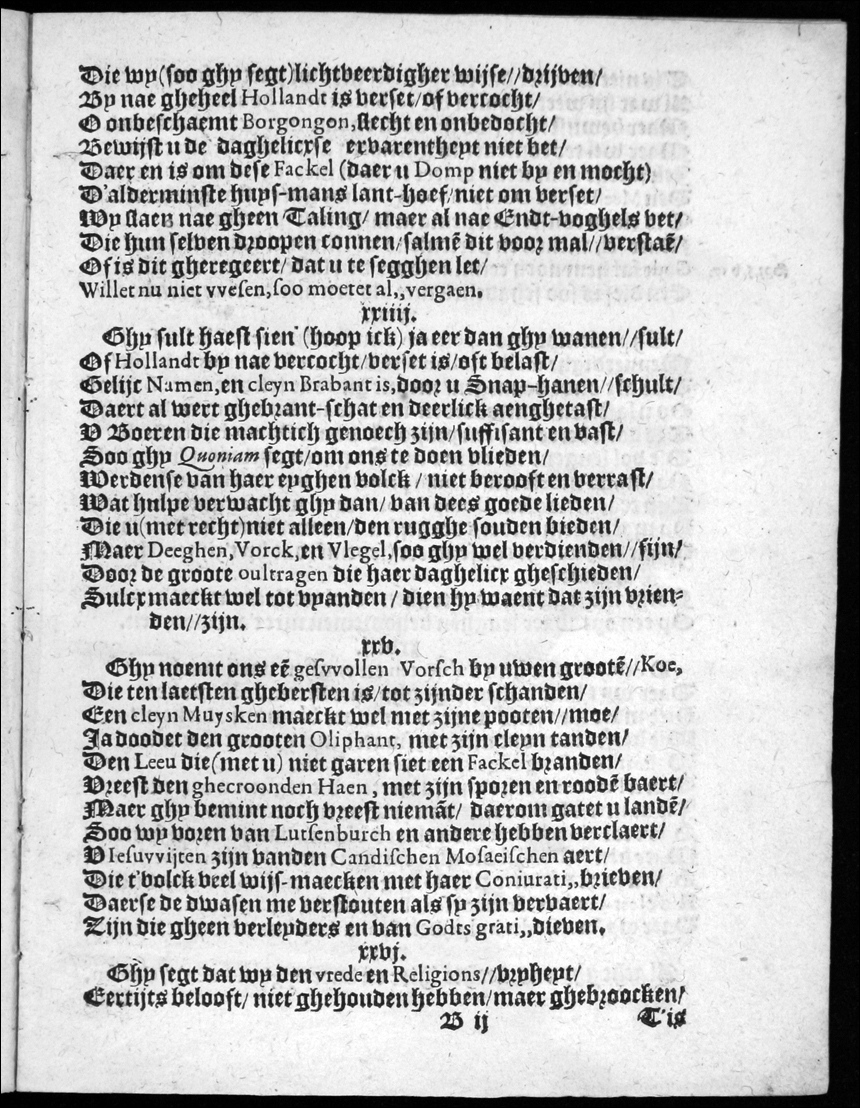 Die wy (soo ghy segt) lichtveerdigher wijse//drijven/
By nae gheheel Hollandt is verset/of vercocht/
O onbeschaemt Borgongon, slecht en onbedocht/
Bewijst u de daghelicxse ervarentheyt niet bet/
Daer en is om dese Fackel (daer u Domp niet by en mocht)
D'alderminste huys-mans lant-hoef/niet om verset/
Wy slaen nae gheen Taling/ maer al nae Endt-voghels vet/
Die hun selven droopen connen/salmẽ dit voor mal//verstaẽ/
Of is dit gheregeert/ dat u te segghen let/
Willet nu niet vvesen, soo moetet al,,vergaen.
xxiiij.
Ghy sult haest sien (hoop ick) ja eer dan ghy wanen//sult/
Of Hollandt by nae vercocht/verset is/oft belast/
Gelijc Namen, en cleyn Brabant is, door u Snap-hanen//schult/
Daert al wert ghebrant-schat en deerlick aenghetast/
V Boeren die machtich genoech zijn/suffisant en vast/
Soo ghy Quoniam segt/om ons te doen vlieden/
Werdense van haer eyghen volck / niet berooft en verrast/
Wat hulpe verwacht ghy dan/ van dees goede lieden/
Die u (met recht) niet alleen/den rugghe souden bieden/
Maer Deeghen, Vorck, en Vlegel, soo ghy wel verdienden//fijn/
Door de groote oultragen die haer daghelicx gheschieden/
Sulcx maeckt wel tot vyanden / dien hy waent dat zijn vrien-
den//zijn.
xxv.
Ghy noemt ons eẽ gesvvollen Vorsch by uwen grootẽ//Koe,
Die ten laetsten ghebersten is/tot zijnder schanden/
Een cleyn Muysken maeckt wel met zijne pooten//moe/
Ja doodet den grooten Oliphant, met zijn cleyn tanden/
Den Leeu die (met u) niet garen siet een Fackel branden/
Vreest den ghecroonden Haen, met zijn sporen en roodẽ baert/
Maer ghy bemint noch vreest niemãt/ daerom gatet u landẽ/
Soo wy voren van Lutsenburch en andere hebben verclaert/
V Iesuvvijten zijn vanden Candischen Mosaeischen aert/
Die t'volck veel wijs-maecken met haer Coniurati,,brieven/
Daerse de dwasen me verstouten als sy zijn vervaert/
Zijn die gheen verleyders en van Godts grati,,dieven.
xxvj.
Ghy segt dat wy den vrede en Religions//vryheyt/
Eertijts belooft/ niet ghehouden hebben/maer ghebroocken/
B ij
T'is